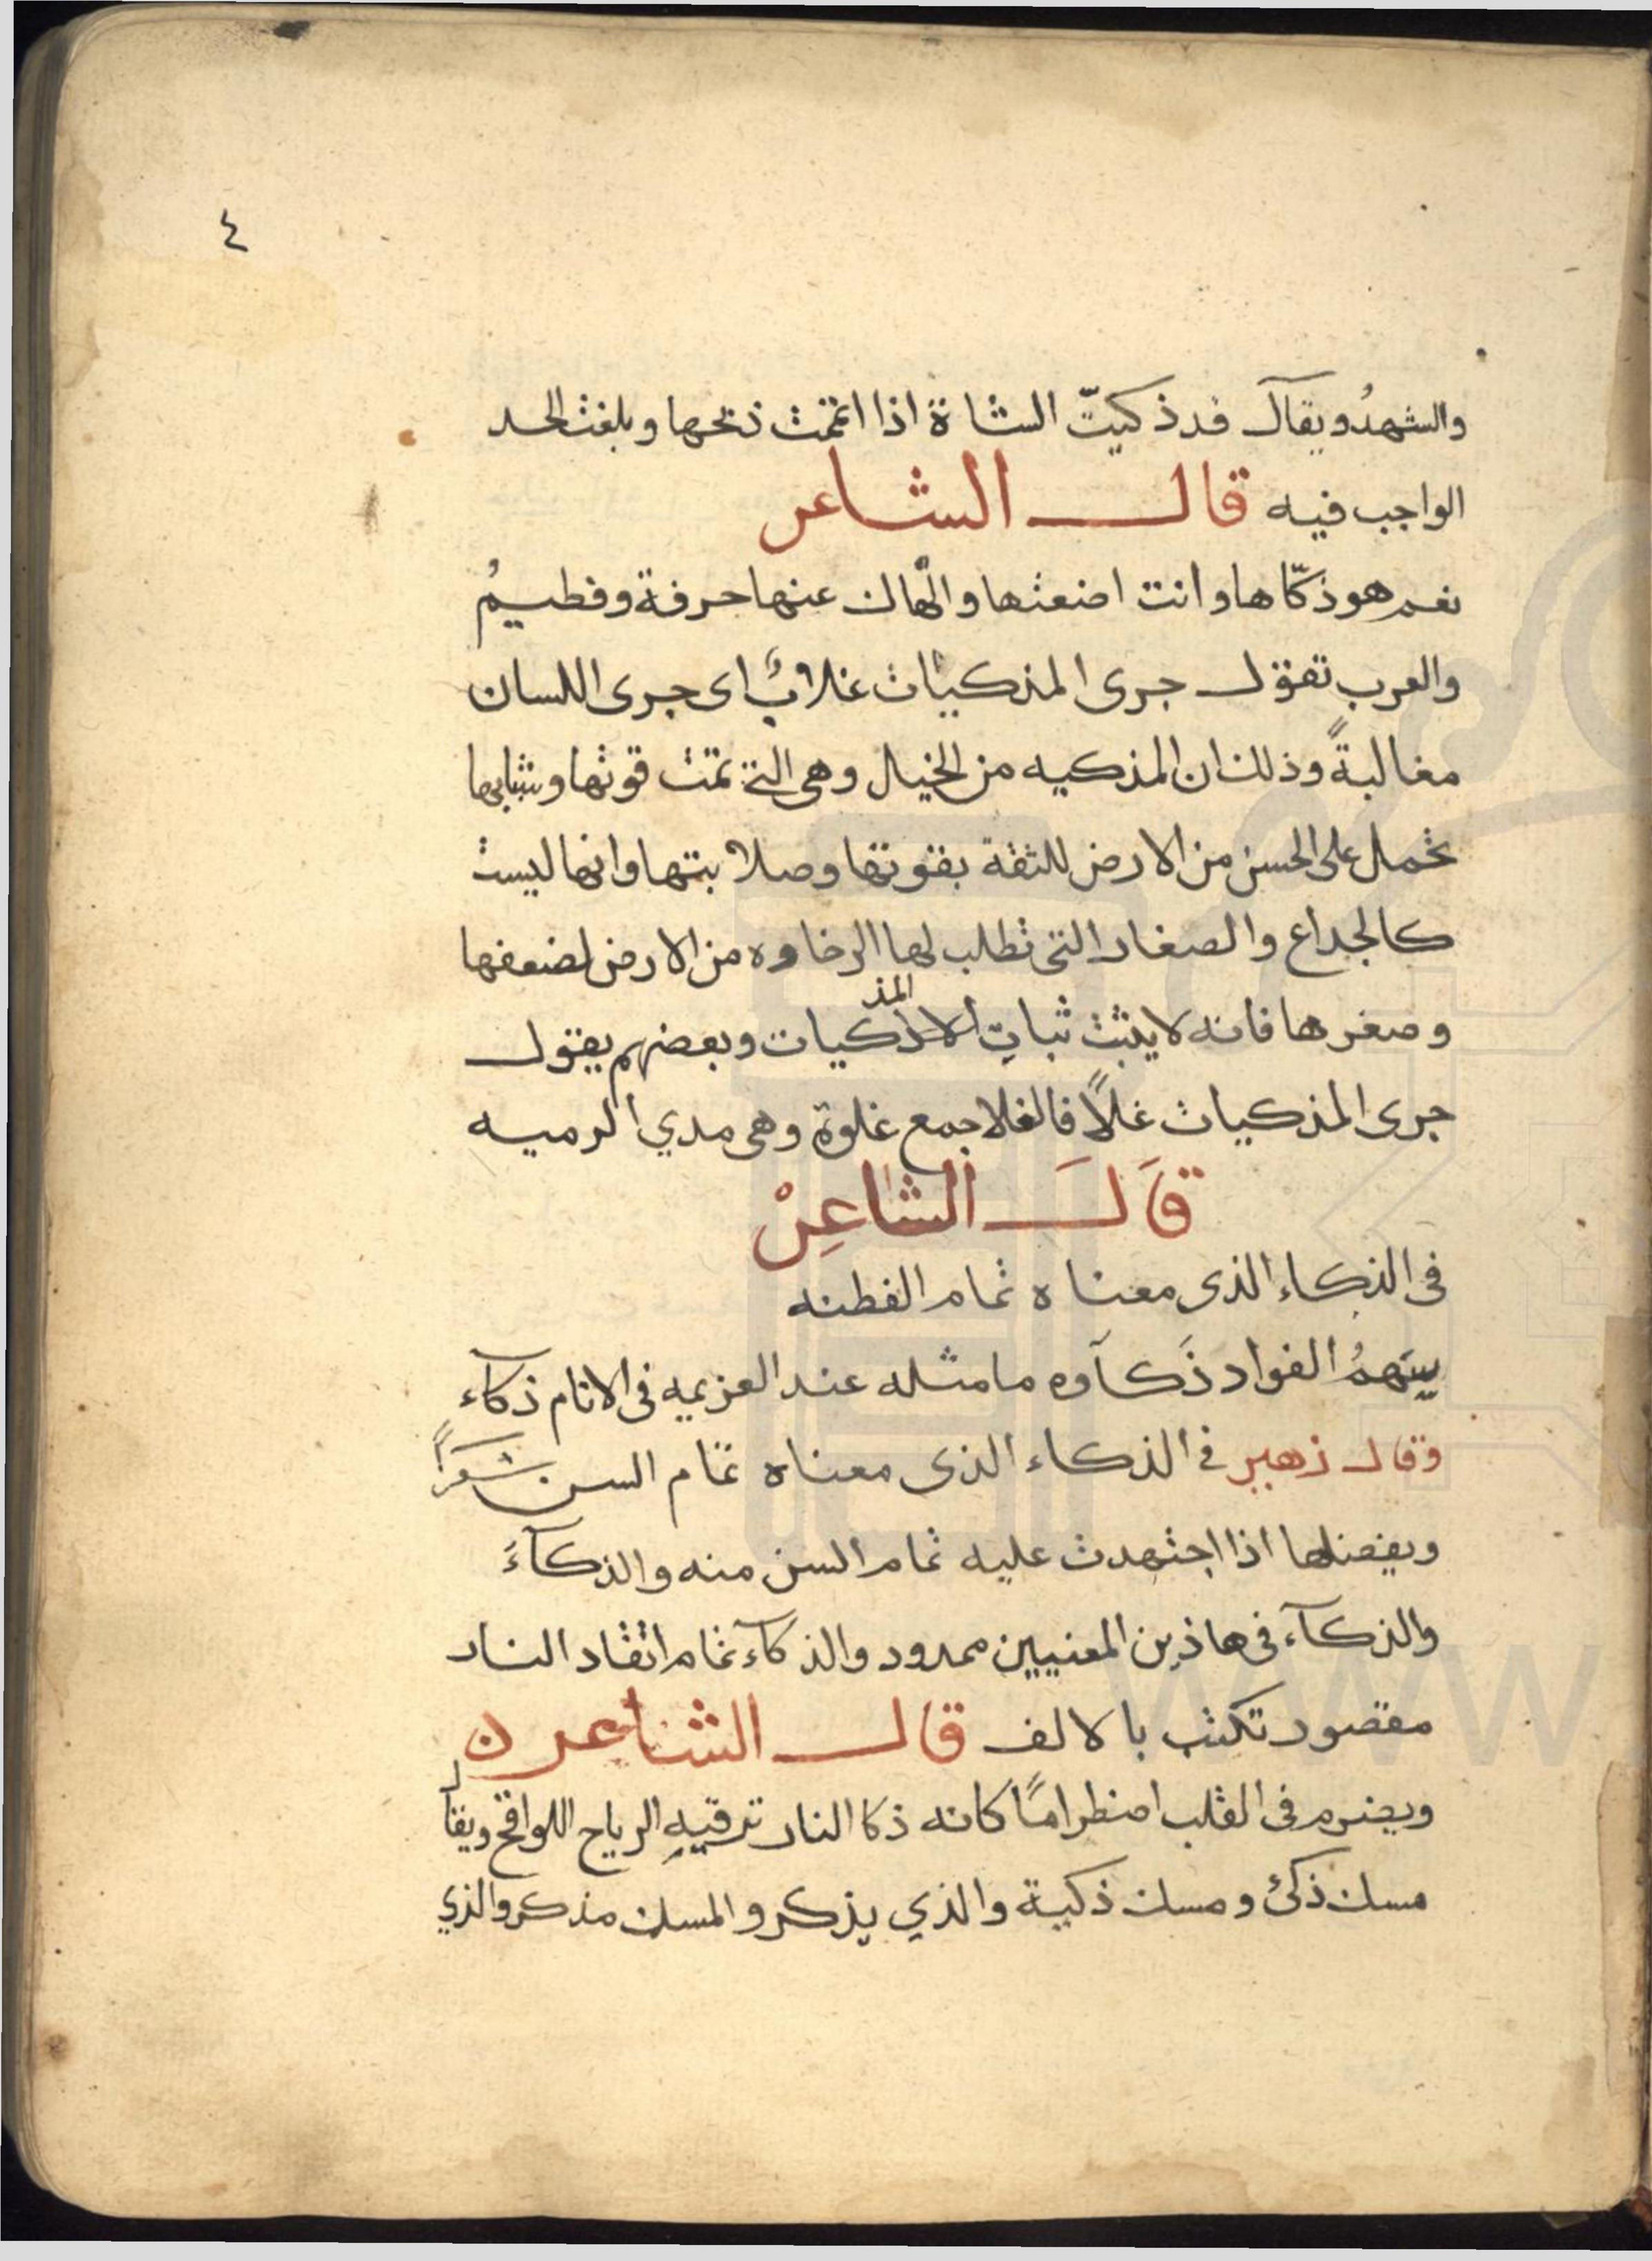 ٤
والشهدُ ويقال قد ذكيتّ الشاة اذا اتممت ذبحها وبلغت الحد
الواجب فيه قال الشاعر
نعم هو ذكّاها وانت اضعتها والّهاك عنها حرفة وفطيمُ
والعرب تقول جرى المذكيات غلابٌ اى جرى اللسان
مغالبةً وذلك ان المذكيه من الخيل وهى التى تمت قوتها وشبابها
تحمل على الحسن من الارض للثقة بقوتها وصلابتها وانها ليست
كالجداع والصغار التى تطلب لها الرخاوه من الارض لضعفها
وصغرها فانه لا يثبت ثباتِ المذكيات وبعضهم يقول
جرى المذكيات غلاً فالغلا جمع غلوة وهى مدي الرميه
قَالَ الشاعِرْ
فى الذكاء الذى معناه تمام الفطنه
سهمُ الفواد ذَكآوه ما مثله عند العزيمه فى الانام ذكآء
وقال زهير فى الذكاء الذى معناه تمام السن شعراً
ويفضلها اذا اجتهدت عليه تمام السن منه والذكآءَ
والذكآء فى هاذين المعنيين ممدود والذكآء تمام اتقاد النار
مقصور تكتب بالالف قال الشاعر ن
ويضرم فى القلب اضطرامًا كانه ذكا النار ترقيهِ الرياح اللواقح ويقال
مسك ذكى ومسك ذكية والذي يذكر والمسك مذكر والذي